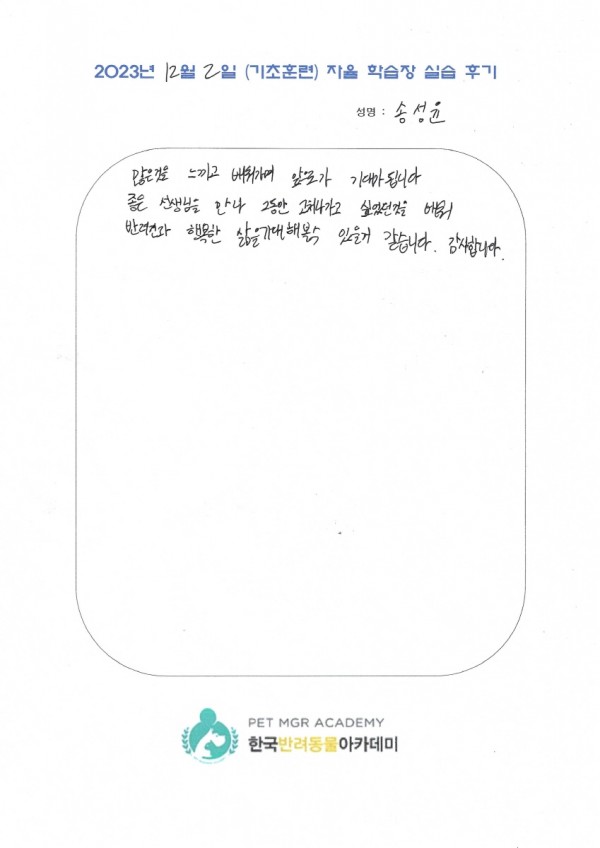 2023년 12월 2일 (기초훈련) 자율 학습장 실습 후기
성명 : 송성윤
많은것을 느끼고 배워가며 앞으로가 기대가됩니다
좋은 선생님을 만나 그동안 고쳐나가고 싶었던것을 배워
반려견과 행복한 삶을기대해볼수 있을거 같습니다. 감사합니다.
PET MGR ACADEMY
한국반려동물아카데미